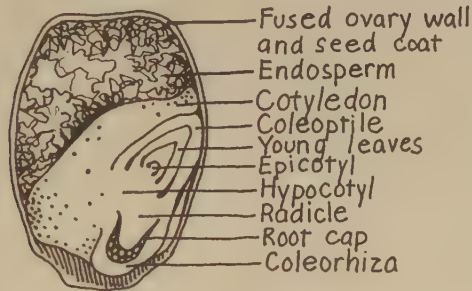 Fused ovary wall
and seed coat
Endosperm
Cotyledon
Coleoptile
Young leaves
Epicotyl
Hypocotyl
Radicle
Root cap
Coleorhiza